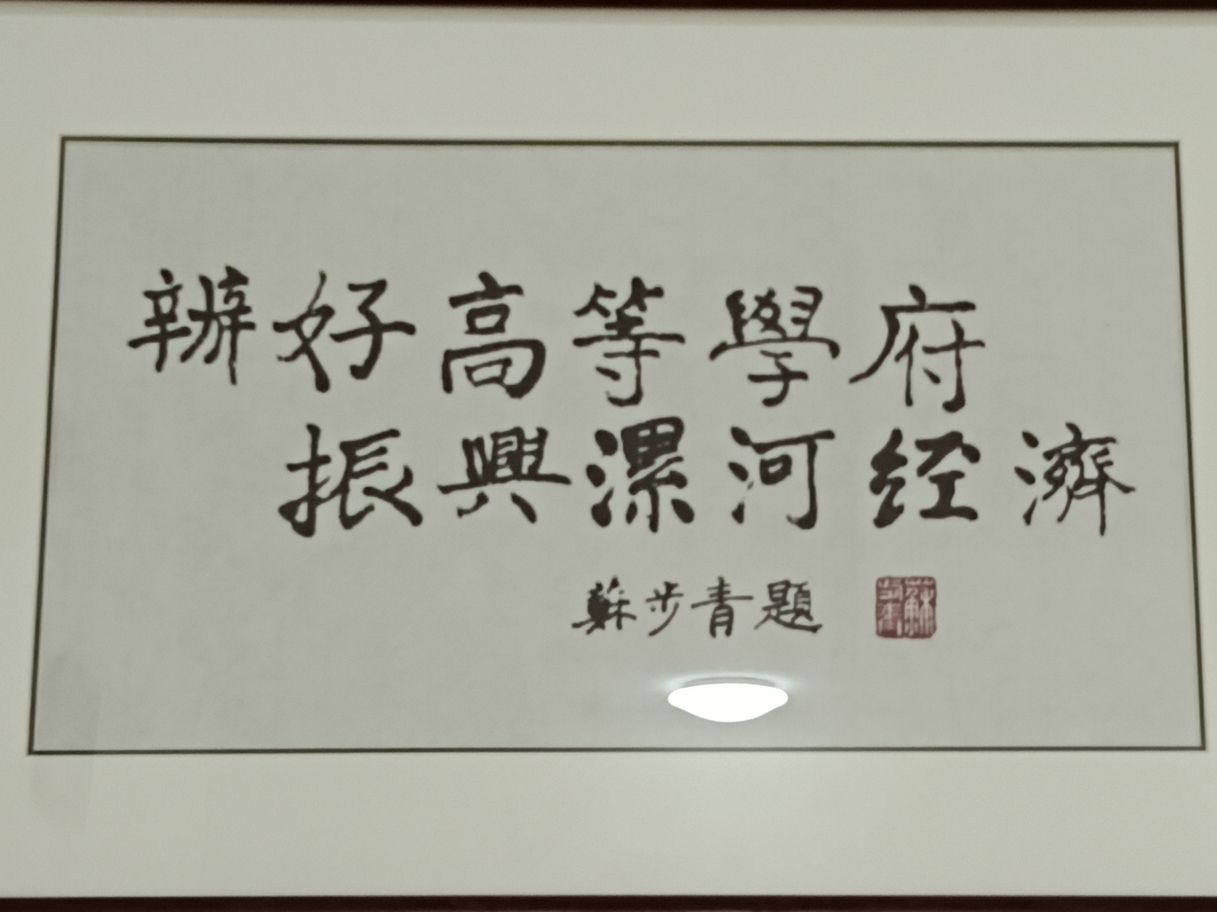 辦好高等學府
振興漯河经濟
蘇步青題